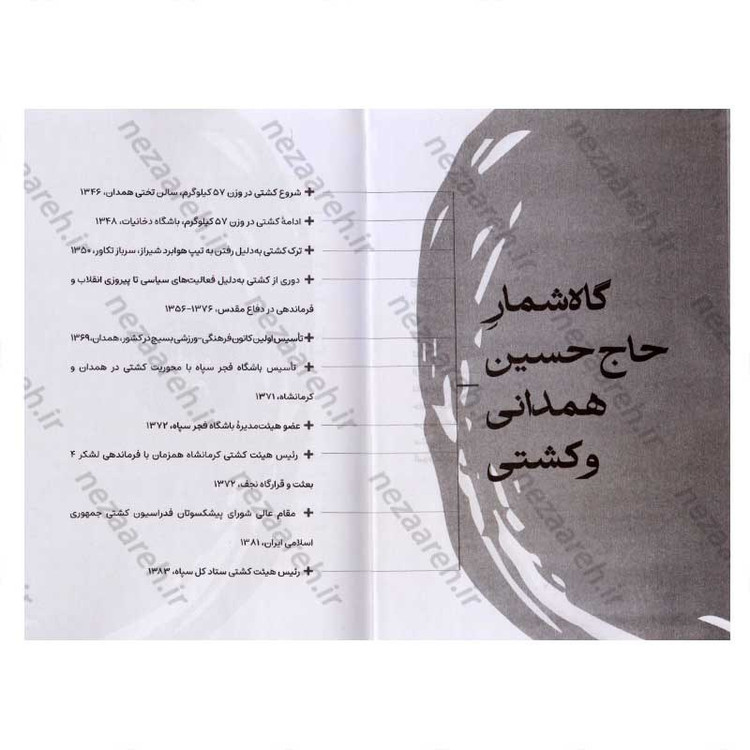 گاه‌شمارِ
حاج حسین
همدانی
و کشتی
+ شروع کشتی در وزن ۵۷ کیلوگرم، سالن تختی همدان، ۱۳۴۶
+ ادامهٔ کشتی در وزن ۵۷ کیلوگرم، باشگاه دخانیات، ۱۳۴۸
+ ترک کشتی به‌دلیل رفتن به تیپ هوابرد شیراز، سرباز تکاور، ۱۳۵۰
+ دوری از کشتی به‌دلیل فعالیت‌های سیاسی تا پیروزی انقلاب و
فرماندهی در دفاع مقدس، ۱۳۷۶-۱۳۵۶
+ تأسیس اولین کانون فرهنگی-ورزشی بسیج در کشور، همدان، ۱۳۶۹
+ تأسیس باشگاه فجر سپاه با محوریت کشتی در همدان و
کرمانشاه، ۱۳۷۱
+ عضو هیئت‌مدیرهٔ باشگاه فجر سپاه، ۱۳۷۲
+ رئیس هیئت کشتی کرمانشاه همزمان با فرماندهی لشکر ۴
بعثت و قرارگاه نجف، ۱۳۷۲
+ مقام عالی شورای پیشکسوتان فدراسیون کشتی جمهوری
اسلامی ایران، ۱۳۸۱
+ رئیس هیئت کشتی ستاد کل سپاه، ۱۳۸۳
nezaareh.ir